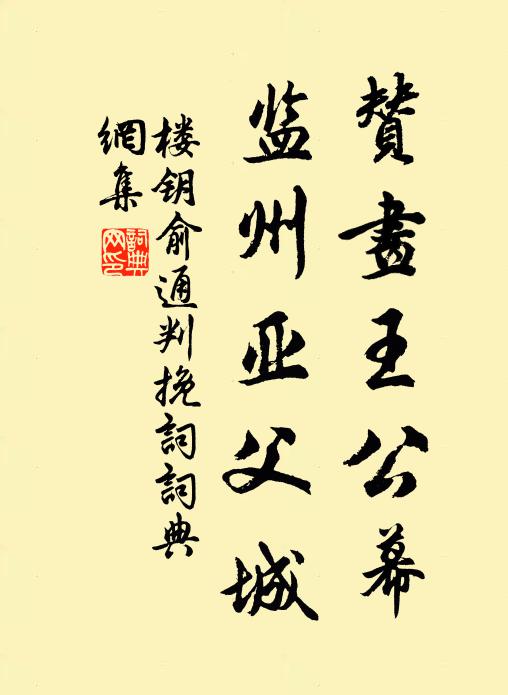 賛畫王公幕
监州亚父城
楼钥俞通判挽詞詞典
網集
詞典
网印